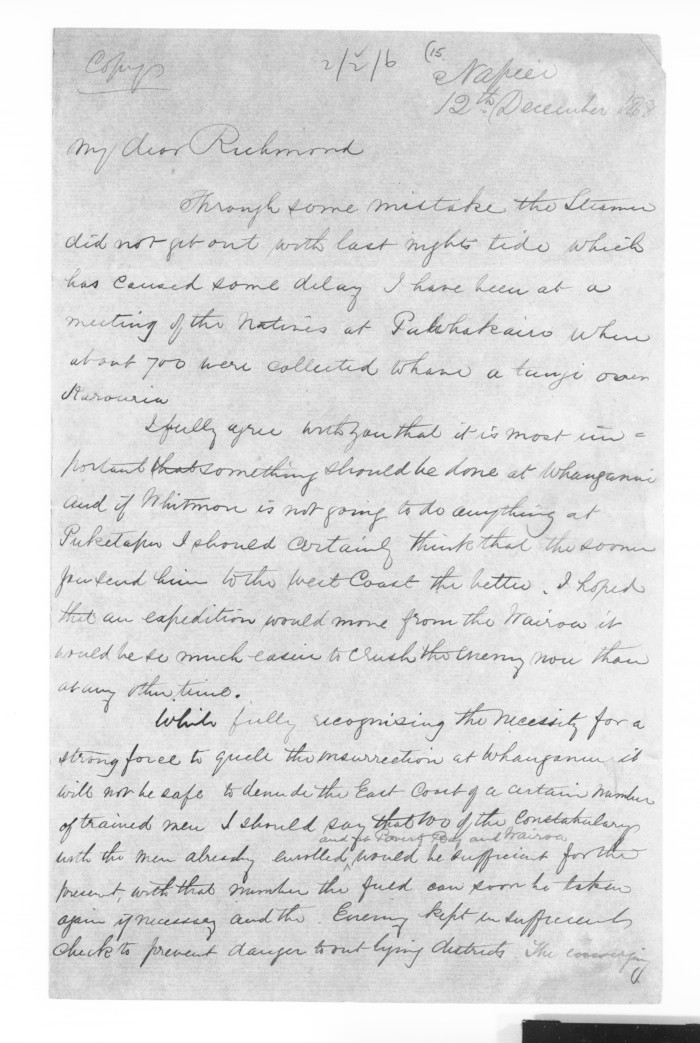 Copy
2/2/6 (15
Napier
12th December 1868
My dear Richmond
Through some mistake the Steamer
did not get out with last nights tide which
has caused some delay I have been at a
meeting of the Natives at Pawhakairo where
about 700 were collected to have a tangi over
Karauria
I fully agree with you that it is most im=
portant that something should be done at Whanganui
and if Whitmore is not going to do anything at
Puketapu I should certainly think that the sooner
you send him to the West Coast the better. I hoped
that an expedition would move from the Wairoa it
would be so much easier to crush the enemy now than
at any other time.
While fully recognizing the necessity for a
strong force to quell the insurrection at Whanganui it
will not be safe to denude the East Coast of a certain number
of trained men I should say that 100 of the Constabulary
and at Poverty Bay and Wairoa
with the men already enrolled, would be sufficient for the
present, with that number the field can soon be taken
again if necessary and the Enemy kept in sufficient
check to prevent danger to out lying districts. The